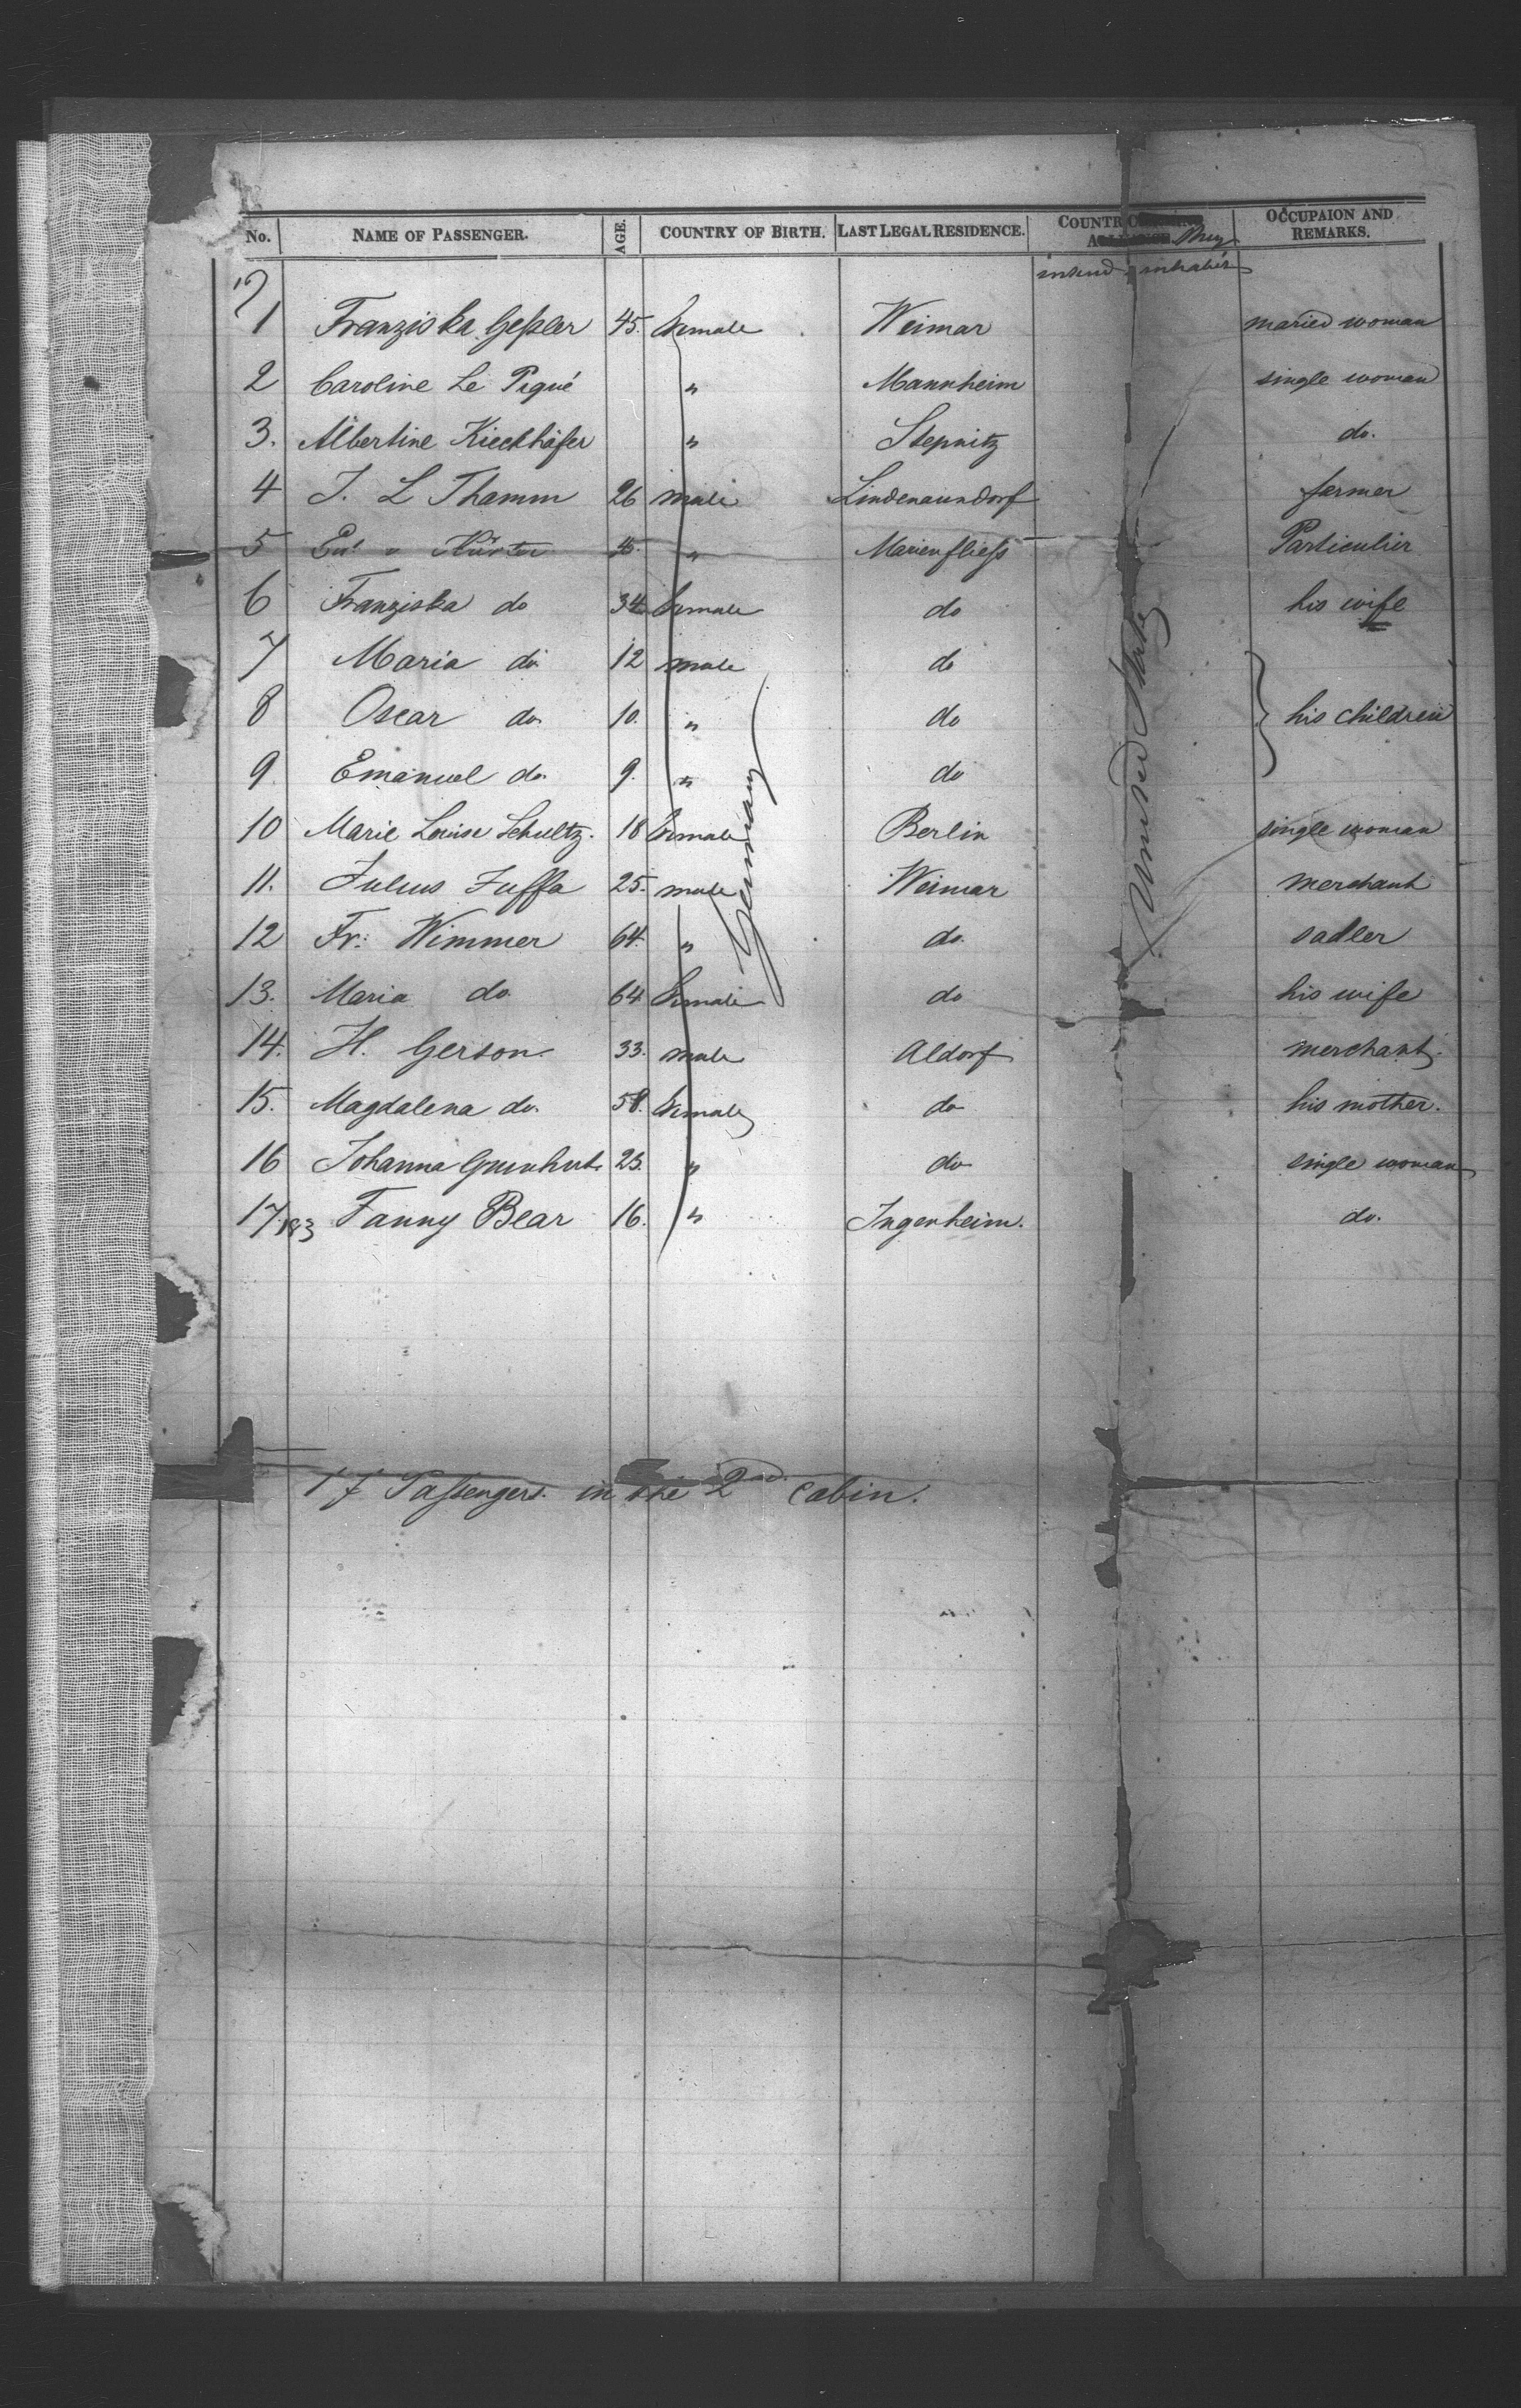 No. NAME OF PASSENGER. AGE. COUNTRY OF BIRTH. LAST LEGAL RESIDENCE. COUNTR they OCCUPAION AND REMARKS.
intend inhabit
17
1 Franziska Geßler 45. female Weimar maried woman
2 Caroline Le Piqué " Mannheim single woman
3. Albertine Kieckhäfer " Stepnitz do.
4 J. L Thamm 26 male Lindenaundorf farmer
5 45. " Marienfließ Particulier
6 Franziska do 34 female do his wife
7 Maria do. 12 male do
8 Oscar do. 10. " do his children
9 Emanuel do. 9. " do
10 Marie Louise Schultz. 18 female Berlin single woman
11. Julius Fuffa 25. male Weimar merchant
12 Fr: Wimmer 64. " do. sadler
13. Maria do. 64 female do his wife
14. H. Gerson. 33. male Aldorf merchant.
15. Magdalena do. 58. female do his mother.
16 Johanna Grunhut 23. " do single woman
17 183 Fanny Bear 16. " Ingenheim. do.
Germany
United States
17 Passengers. in the 2nd. cabin.